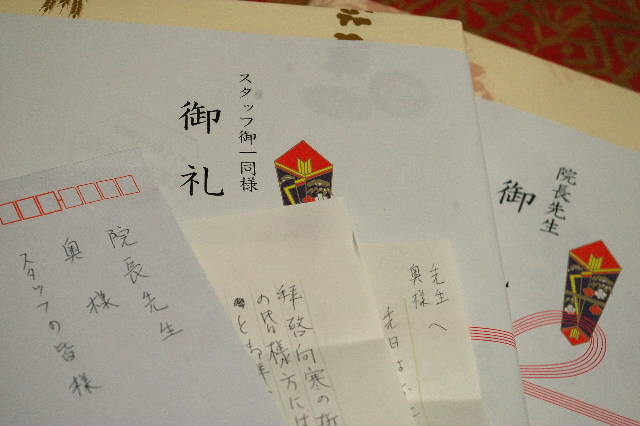 スタッフ御一同様
御礼
院長先生
御
院長先生
奥様
スタッフの皆様
拝啓向寒の折
の皆様方には
先生へ
奥様
先日は